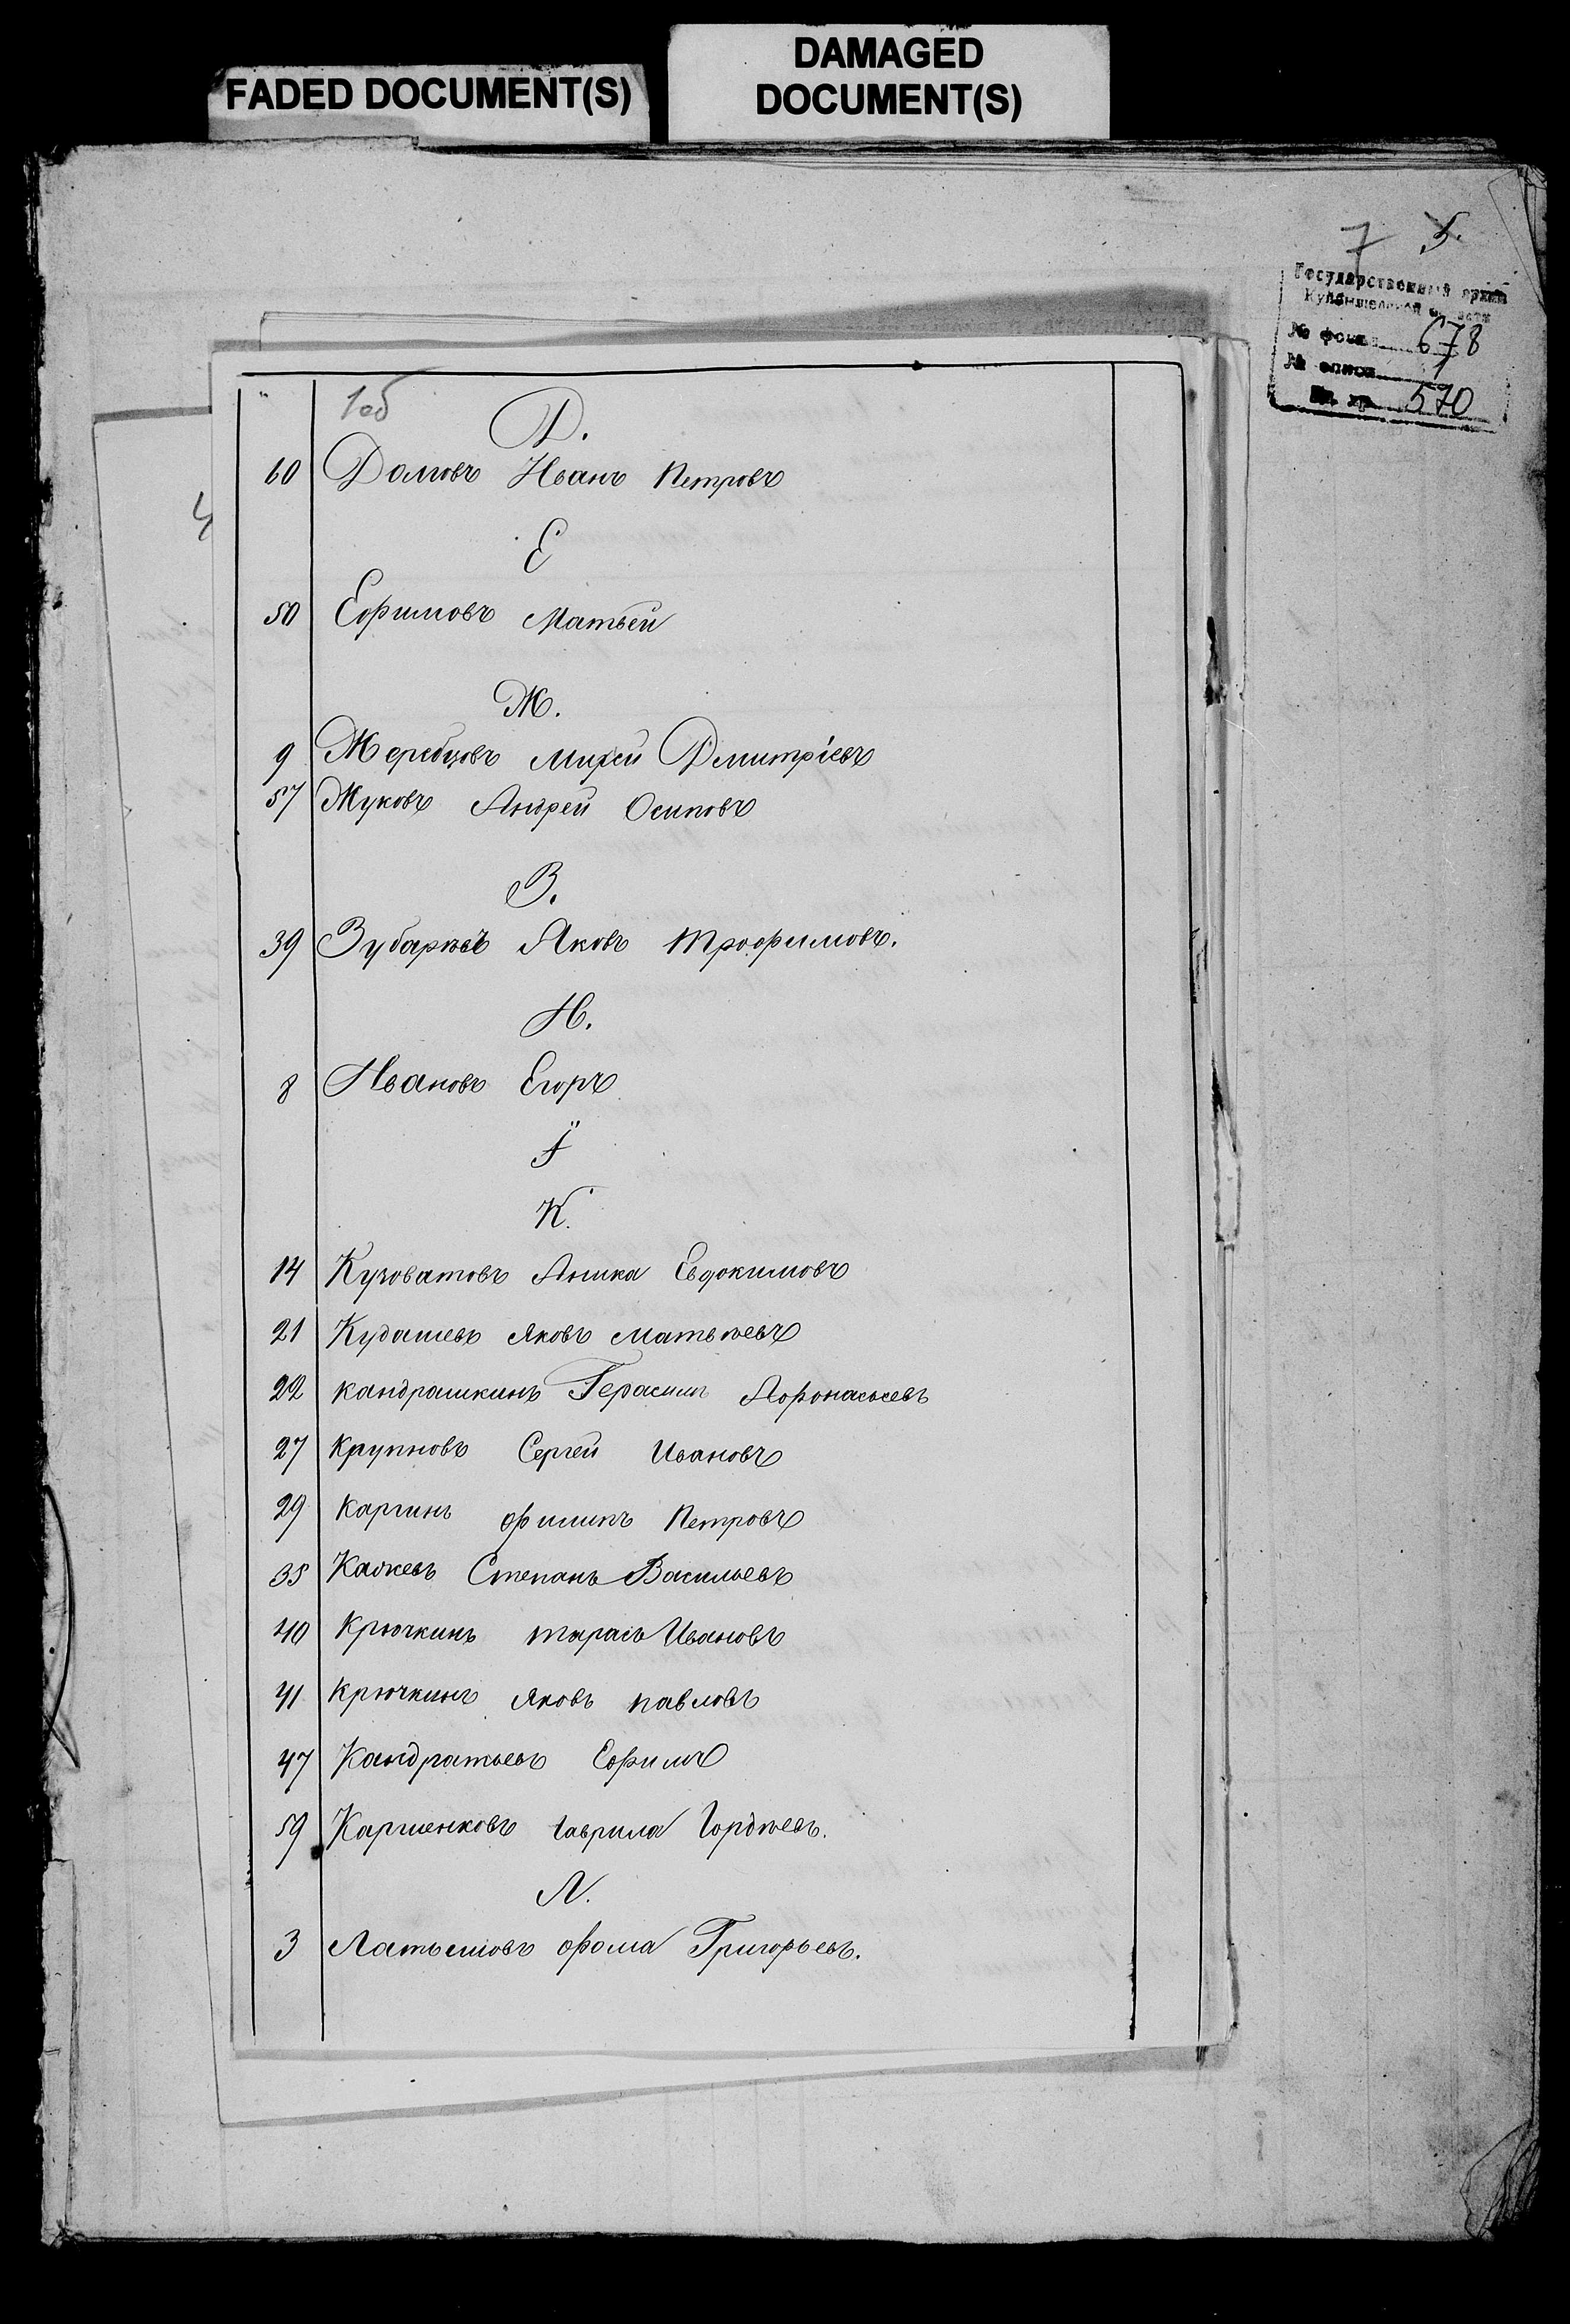 DAMAGED
FADED DOCUMENT(S)
DOCUMENT(S)
7 5.
Государственный архив
Куйбышевской области
№ фонда 678
№ описи 1
Ед. хр. 570
1об
Д.
60 Домовъ Иванъ Петровъ
Е
50 Ефимовъ Матвей
Ж.
9 Жеребцовъ Михей Дмитріевъ
57 Жуковъ Андрей Осиповъ
З.
39 Зубаревъ Яковъ Трофимовъ.
И.
8 Ивановъ Егоръ
Ї
К.
14 Кузоватовъ Аника Евдокимовъ
21 Кудашевъ Яковъ Матвѣевъ
22 Кандрашкинъ Герасимъ Афонасьевъ
27 Крупновъ Сергей Ивановъ
29 Каргинъ Филипъ Петровъ
35 Степанъ Васильевъ
40 Крючкинъ Тарасъ Ивановъ
41 Крючкинъ Яковъ Павловъ
47 Кандратьевъ Ефимъ
59 Гаврила Гордѣевъ.
Л.
3 Фома Григорьевъ.